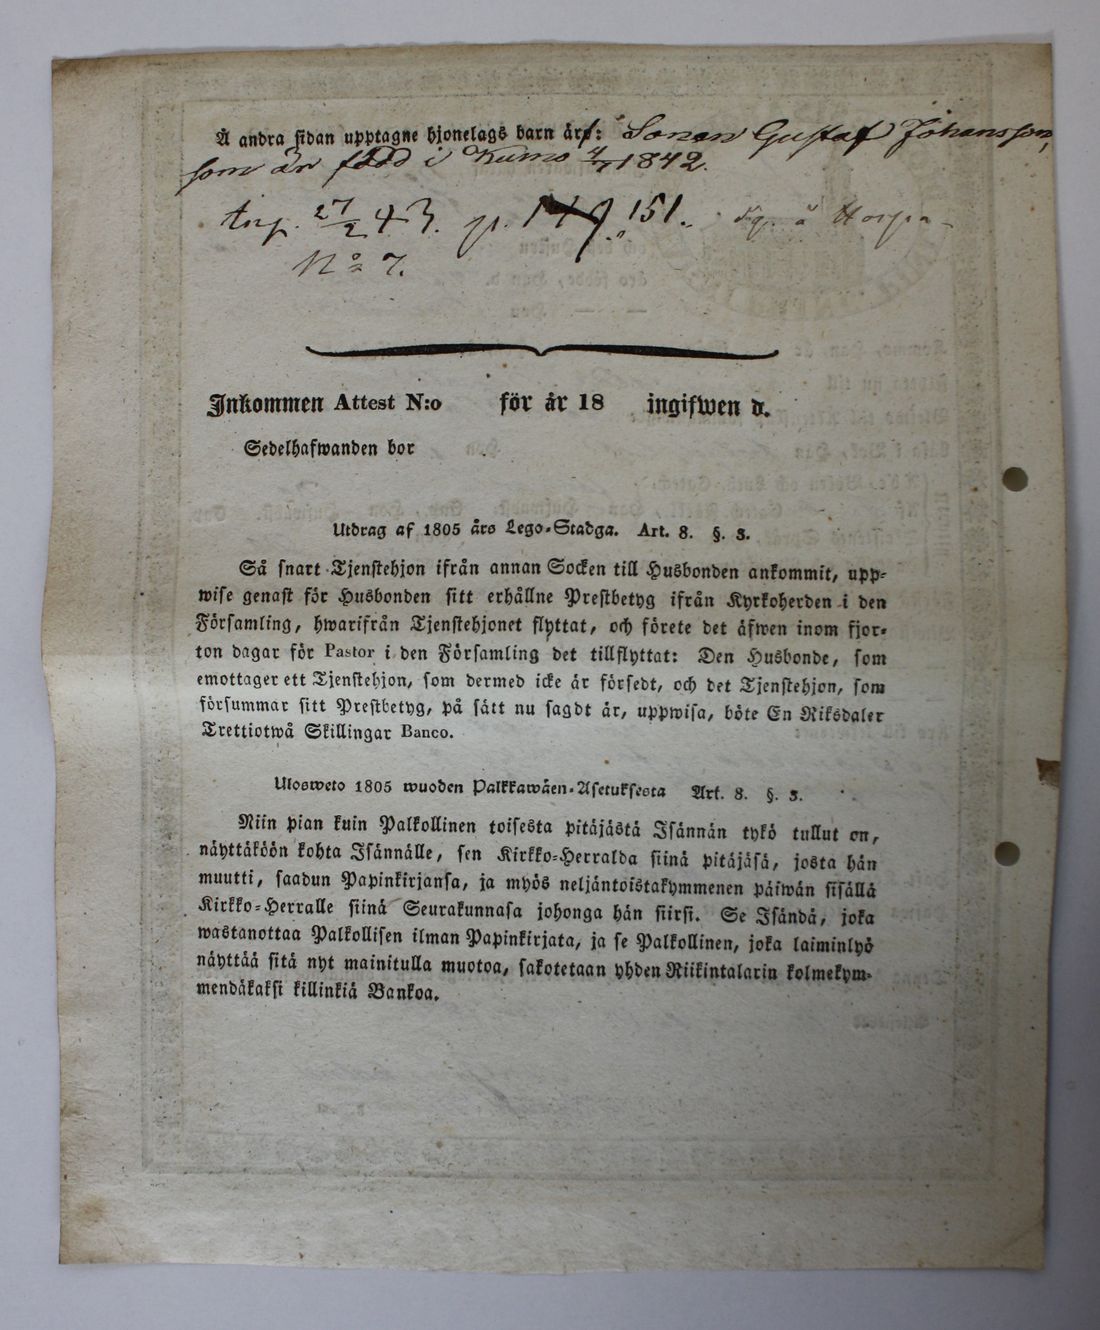 Å andra sidan upptagne hjonelags barn äro: Sonen Gustaf Johansson,
som är född i Kumo 4/7 1842.
27/2 43. p. 149. 151.
N:o 7.
Inkommen Attest N:o för år 18 ingifwen d.
Sedelhafwanden bor
Utdrag af 1805 års Lego-Stadga. Art. 8. §. 3.
Så snart Tjenstehjon ifrån annan Socken till Husbonden ankommit, upp-
wise genast för Husbonden sitt erhållne Prestbetyg ifrån Kyrkoherden i den
Församling, hwarifrån Tjenstehjonet flyttat, och förete det äfwen inom fjor-
ton dagar för Pastor i den Församling det tillflyttat: Den Husbonde, som
emottager ett Tjenstehjon, som dermed icke är försedt, och det Tjenstehjon, som
försummar sitt Prestbetyg, på sätt nu sagdt är, uppwisa, böte En Riksdaler
Trettiotwå Skillingar Banco.
Ulosweto 1805 wuoden Palkkawäen-Asetuksesta Art. 8. §. 3.
Niin pian kuin Palkollinen toisesta pitäjästä Isännän tykö tullut on,
näyttäköön kohta Isännälle, sen Kirkko-Herralda siinä pitäjäsä, josta hän
muutti, saadun Papinkirjansa, ja myös neljäntoistakymmenen päiwän sisällä
Kirkko-Herralle siinä Seurakunnasa johonga hän siirsi. Se Isändä, joka
wastanottaa Palkollisen ilman Papinkirjata, ja se Palkollinen, joka laiminlyö
näyttää sitä nyt mainitulla muotoa, sakotetaan yhden Riikintalarin kolmekym-
mendäkaksi killinkiä Bankoa.